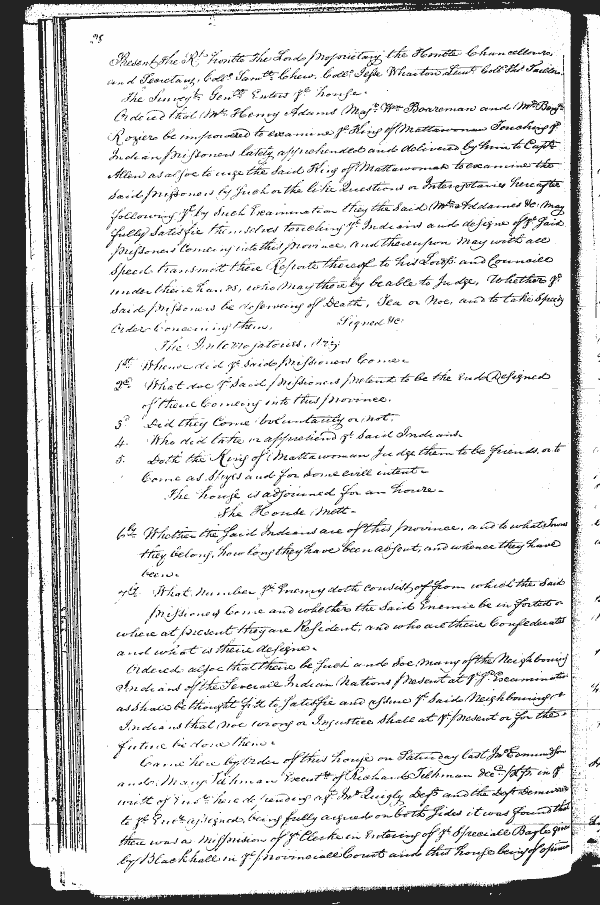 28
Present the Rt. Honble the Lord Proprietary the Honble Chancellour
and Secretary, Coll. Samll. Chew, Coll. Jesse Wharton Lieut. Coll. Thos Tailler
The Surveyr. Genll. Enters ye. house.
Ordered that Mr. Henry Adams Majr. Wm. Boareman and Mr. Benja.
Roziere be impowered to examine ye. King of Mattawoman Touching ye
Indian Prissoners lately apprehended and delivered by him to Capt.
Allen as alsoe to urge the Said King of Mattawoman to examine the
Said Prissoners by Such or the like Questions or Interrogatories hereafter
following yt. by Such Examination they the Said Mr. Addames &c. may
fully Satisfie themselves touching ye Indians and designe of ye. Said
Prissoners Comeing into this Province, and thereupon may with all
Speed transmitt there Reporte thereof to his Lordp. and Councill
under theire hands, who may thereby be able to Judge, Whether ye.
Said Prissoners be deserving of Death, Yea or Noe, and to take Speedy
Order Concerning them. Signed &c.
The Interrogatours, viz:
1st. Whence did ye Said Prissoners Come.
2d. What doe ye Said Prissoners Pretent to be the End Designed
of theire Comeing into this Province.
3d Did they Come Voluntarily or not.
4. Who did take or apprehend ye Said Indians.
5. Doth the King of Mattawoman Judge them to be friends, or to
Come as Spyes and for Some evill intent.
The house is adjourned for an houre.
The House Mett.
6thly. Whether the Said Indians are of this Province, and to what Towne
they belong, how long they have been absent, and whence they have
been.
7th. What Number ye. Enemy doth consist of from which the Said
Prissoners Come and whether the Said Enemie be in forted or
where at present they are Resident, and who are theire Confederates
and what is theire designe.
Ordered alsoe that there be Such and Soe many of the Neighbouring
Indians of the Severall Indian Nations Present at ye Sd. Examination
as Shall be thought fitt to Satisfie and assure ye Said Neighbouring
Indians that noe wrong or Injustice Shall at ye present or for the
future be done them.
Came here by Order of this house on Saturday last Jno. Edmundson
and Mary Tilghman Execut. of Richard Tilghman decd. Plts. in ye
writt of Error here depending agt. Jno. Quigly Deft. and the Deft. Demurrer
to ye. Errors assigned, being fully argued on both Sides it was found that
there was a Misprision of ye Clerke in Entering of ye Speciall Bayle given
by Blackhall in ye Provinciall Court and this house being of opinion